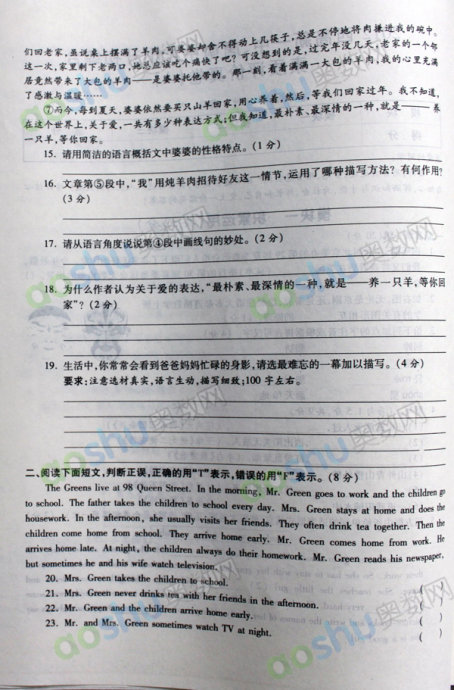 们回老家,虽说桌上摆满了羊肉,可婆婆却舍不得动上几筷子,总是不停地将肉搛进我的碗中。
这一次,家里剩下老两口,她总应该吃个痛快了吧?可没想到的是,过完年没几天,老家的一个邻
居竟然带来了大包的羊肉——是婆婆托他带的。那一刻,看着满满一大包的羊肉,我的心里充满
了感激与温暖……
⑦而今,每到夏天,婆婆依然要买只山羊回家,用心养着,然后,等我们回家过年。我不知道,
在这个世界上,关于爱,一共有多少种表达方式;但我知道,最朴素、最深情的一种,就是——养
一只羊,等你回家。
15. 请用简洁的语言概括文中婆婆的性格特点。(1分)
16. 文章第⑤段中,“我”用炖羊肉招待好友这一情节,运用了哪种描写方法?有何作用?
(3分)
17. 请从语言角度说说第④段中画线句的妙处。(2分)
18. 为什么作者认为关于爱的表达,“最朴素、最深情的一种,就是——养一只羊,等你回
家”?(2分)
19. 生活中,你常常会看到爸爸妈妈忙碌的身影,请选最难忘的一幕加以描写。(4分)
要求:注意选材真实,语言生动,描写细致;100字左右。
二、阅读下面短文,判断正误,正确的用“T”表示,错误的用“F”表示。(8分)
The Greens live at 98 Queen Street. In the morning, Mr. Green goes to work and the children go
to school. The father takes the children to school every day. Mrs. Green stays at home and does the
housework. In the afternoon, she usually visits her friends. They often drink tea together. Then the
children come home from school. They arrive home early. Mr. Green comes home from work. He
arrives home late. At night, the children always do their homework. Mr. Green reads his newspaper,
but sometimes he and his wife watch television.
20. Mrs. Green takes the children to school. ( )
21. Mrs. Green never drinks tea with her friends in the afternoon. ( )
22. Mr. Green and the children arrive home early. ( )
23. Mr. and Mrs. Green sometimes watch TV at night. ( )
aoshu奥数网